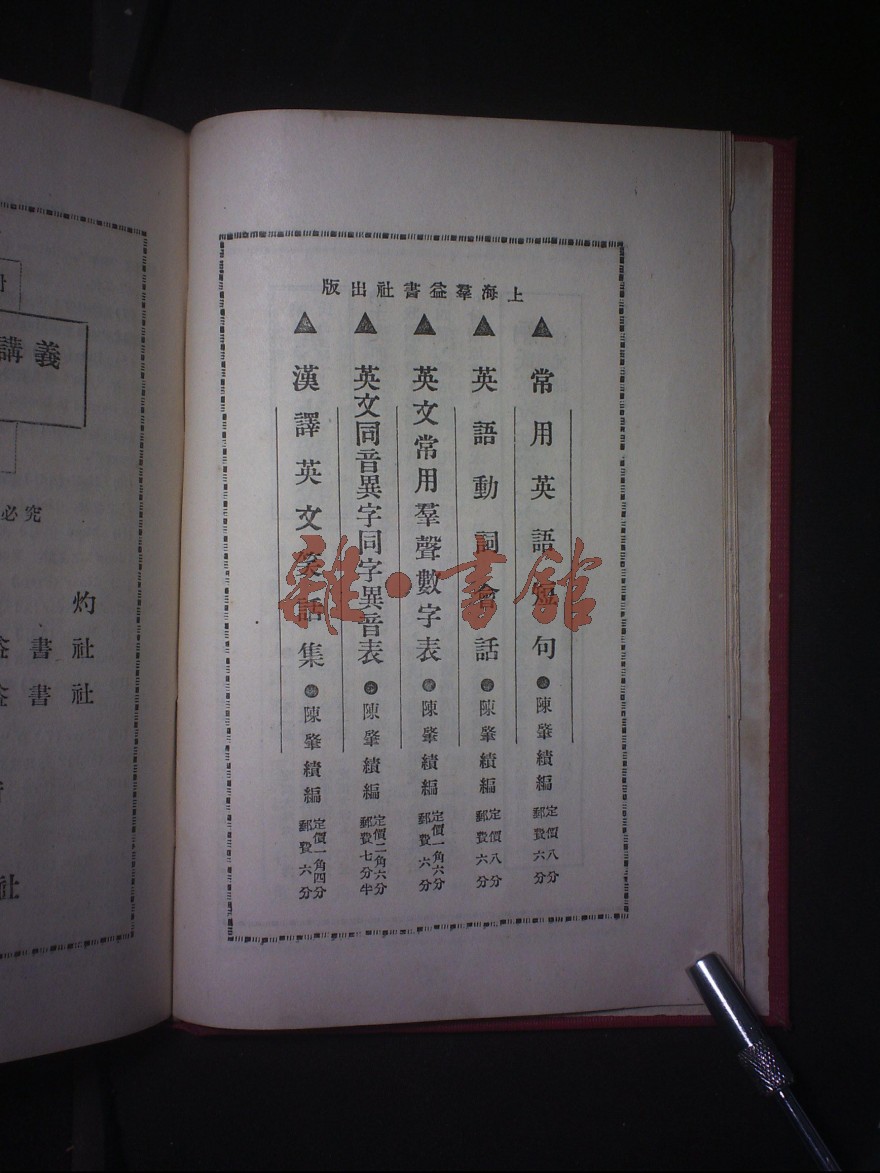 上海羣益書社出版
▲常用英語短句●陳肇績編 定價八分 郵費六分
▲英語動詞會話●陳肇績編 定價八分 郵費六分
▲英文常用羣聲數字表●陳肇績編 定價一角六分 郵費六分
▲英文同音異字同字異音表●陳肇績編 定價二角六分 郵費七分半
▲漢譯英文笑話集●陳肇績編 定價一角四分 郵費六分
雜·書館
講義
必究
灼
益書社
益書社
社